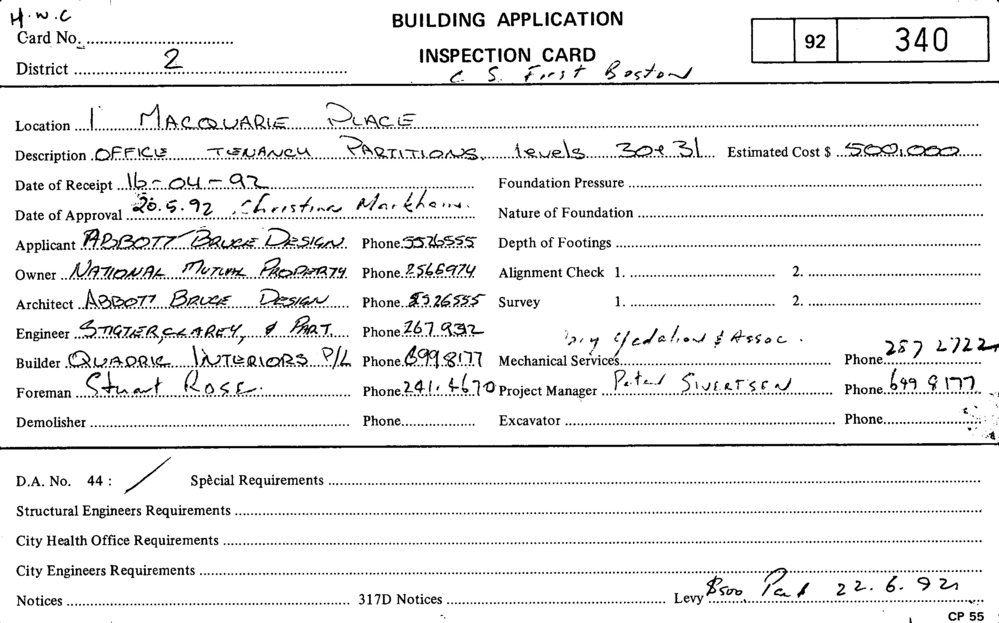 H.W.C
BUILDING APPLICATION
Card No.
92 340
INSPECTION CARD
District 2
C. S. First Boston
Location 1 MACQUARIE PLACE
Description OFFICE TENANCY PARTITIONS. levels 30 & 31 Estimated Cost $ 500,000
Date of Receipt 16-04-92 Foundation Pressure
Date of Approval 20.5.92 Christina Markham. Nature of Foundation
Applicant ABBOTT BRUCE DESIGN. Phone 5526555 Depth of Footings
Owner NATIONAL MUTUAL PROPERTY Phone 2566974 Alignment Check 1. 2.
Architect ABBOTT BRUCE DESIGN Phone 5526555 Survey 1. 2.
Engineer STIGTER, CLAREY, & PART. Phone 267 932
Builder QUADRIC INTERIORS P/L Phone 699 8177 Mechanical Services & Assoc. Phone 287 2722
Foreman Stuart ROSE. Phone 241.4670 Project Manager Peter SIVERTSEN Phone 699 8177
Demolisher Phone Excavator Phone
D.A. No. 44 : / Special Requirements
Structural Engineers Requirements
City Health Office Requirements
City Engineers Requirements
Notices 317D Notices Levy $500 Paid 22.6.92
CP 55